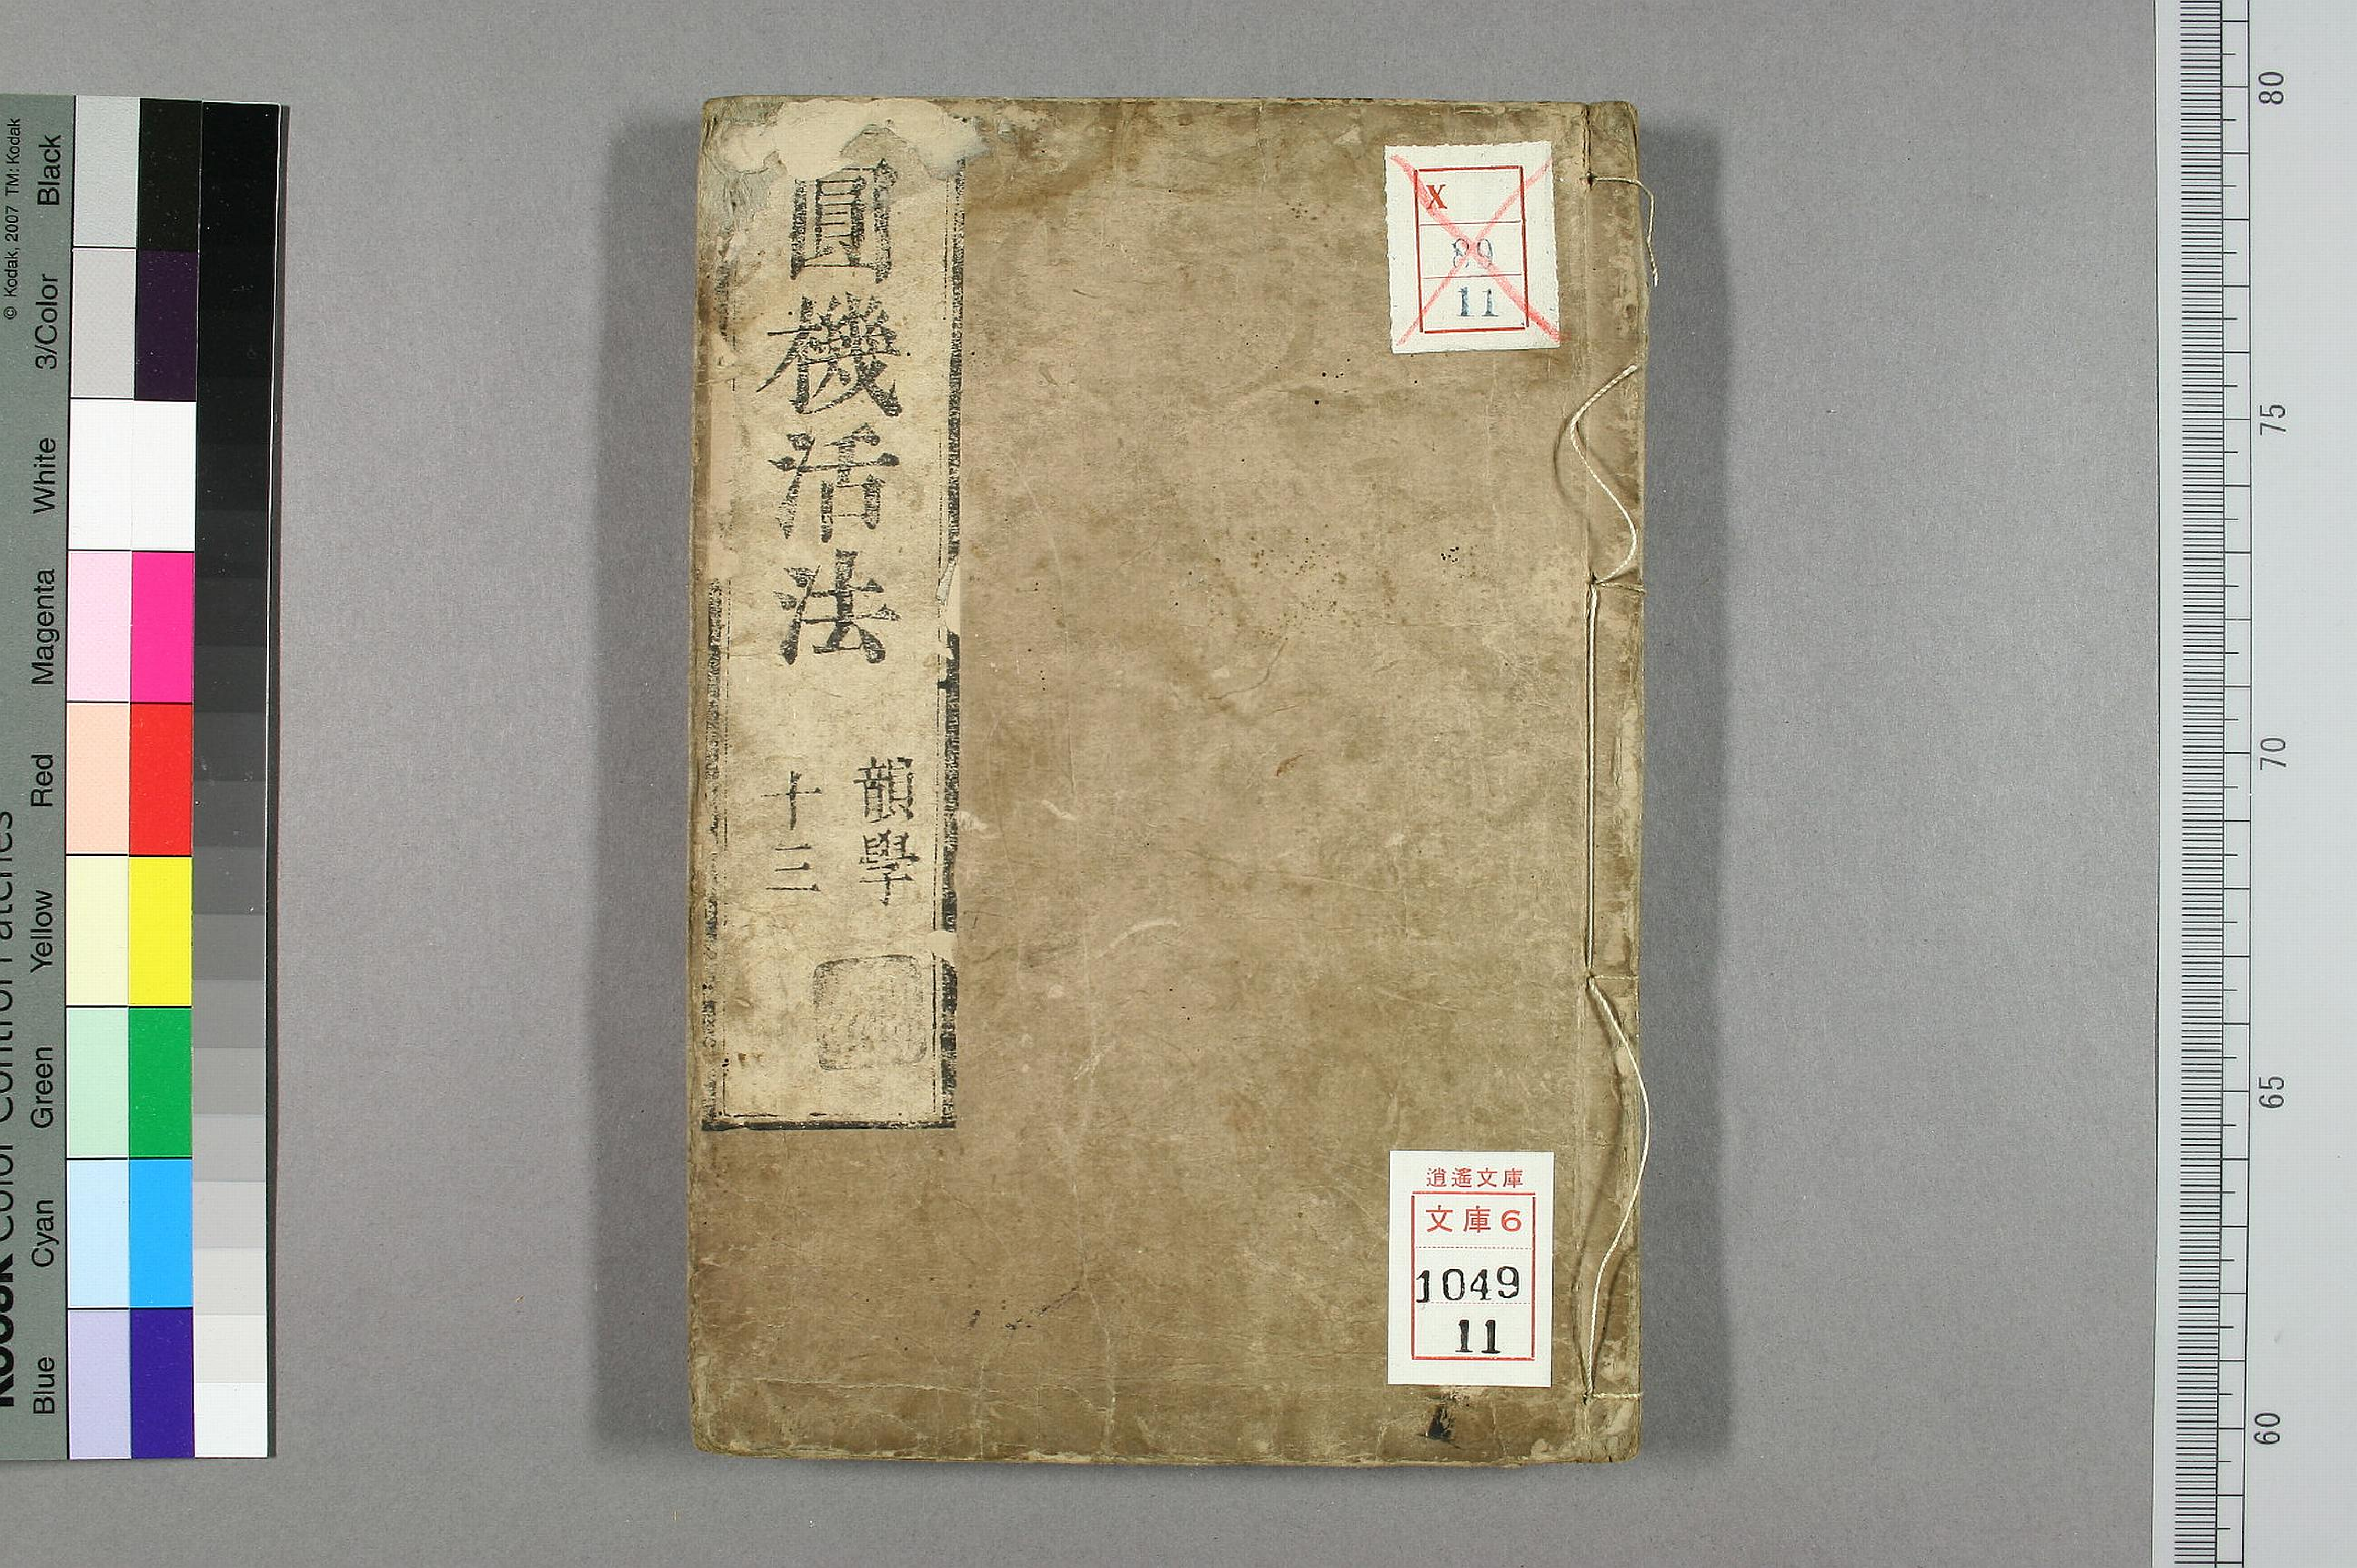 圓機活法
韻學
十三
X
89
11
逍遙文庫
文庫6
1049
11
© Kodak, 2007 TM: Kodak
Black
3/Color
White
Magenta
Red
Yellow
Green
Cyan
Blue
80
75
70
65
60